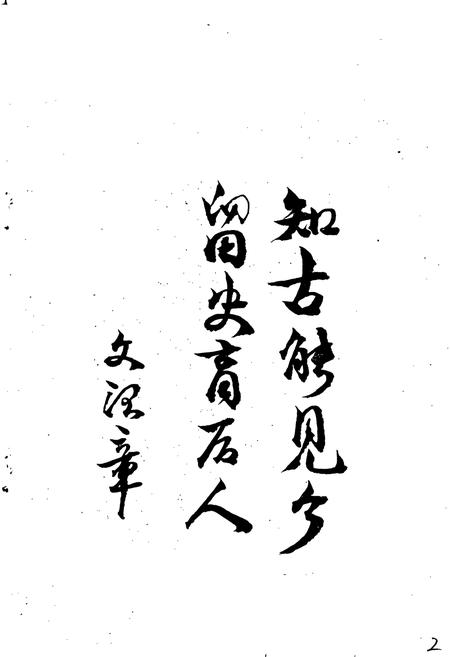 知古能见今
留史育后人
文泽章
2